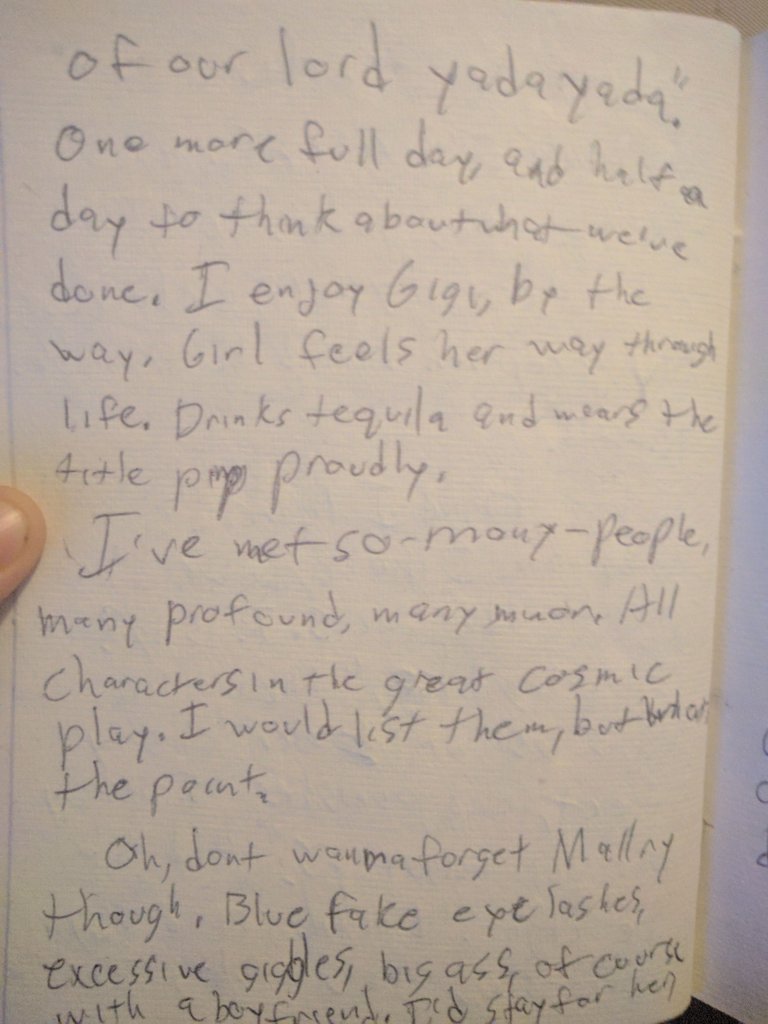 of our lord yada yada."
One more full day, and half a
day to think about what we've
done. I enjoy Gigi, by the
way. Girl feels her way through
life. Drinks tequila and wears the
title pimp proudly.
I've met so-many-people,
many profound, many . All
characters in the great cosmic
play. I would list them, but
the point.
Oh, dont wanna forget Mallry
though. Blue fake eye lashes,
excessive giggles, big ass, of course
with a boyfriend. I'd stay for her